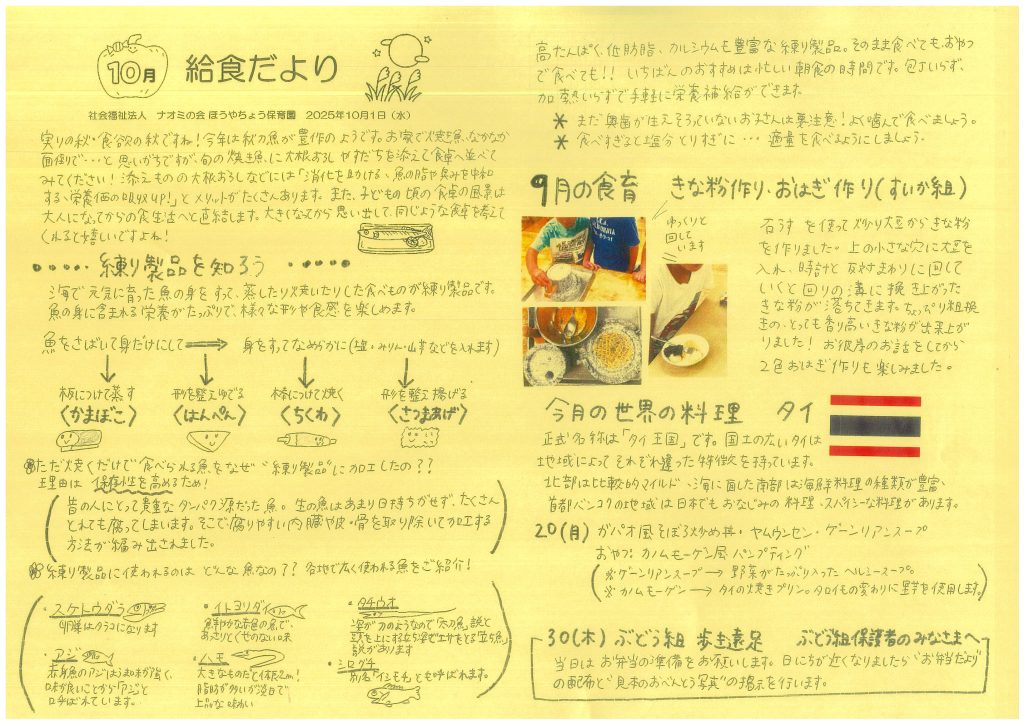 10月
給食だより
社会福祉法人　ナオミの会 ほうやちょう保育園　2025年10月1日（水）
実りの秋・食欲の秋ですね！今年は秋刀魚が豊作のようです。お家で焼き魚、なかなか
面倒で・・・と思いがちですが、旬の焼き魚に大根おろしやすだちを添えて食卓へ並べて
みてください！添えものの大根おろしなどには「消化を助ける、魚の脂や臭みを中和
する、栄養価の吸収UP！」とメリットがたくさんあります。また、子どもの頃の食卓の風景は
大人になってからの食生活へと直結します。大きくなってから思い出して、同じような食卓を考えて
くれると嬉しいですよね！
練り製品を知ろう
海で元気に育った魚の身をすって、蒸したり焼いたりした食べものが練り製品です。
魚の身に含まれる栄養がたっぷりで、様々な形や食感を楽しめます。
魚をさばいて身だけにして → 身をすってなめらかに（塩・みりん・山芋などを入れます）
板につけて蒸す　形を整えゆでる　棒につけて焼く　形を整え揚げる
〈かまぼこ〉　〈はんぺん〉　〈ちくわ〉　〈さつまあげ〉
ただ焼くだけで食べられる魚をなぜ“練り製品”に加工したの？？
理由は 保存性を高めるため！
昔の人にとって貴重なタンパク源だった魚。生の魚はあまり日持ちがせず、たくさん
とれても腐ってしまいます。そこで腐りやすい内臓や皮・骨を取り除いて加工する
方法が編み出されました。
練り製品に使われるのは どんな魚なの？？各地で広く使われる魚をご紹介！
・スケトウダラ
卵巣はタラコになります
・イトヨリダイ
鮮やかな赤色の魚で、
あっさりくせのない味
・タチウオ
姿が刀のようなので「太刀魚」説と
頭を上にする立ち姿でエサをとる「立ち魚」
説があります
・アジ
赤身魚のアジはうま味が強く、
味が良いことから「アジ」と
呼ばれています。
・ハモ
大きなものだと体長2m！
脂肪が多いが淡白で
上品な味わい
・シログチ
別名「イシモチ」とも呼ばれます。
高たんぱく、低脂肪、カルシウムも豊富な練り製品。そのまま食べても、おやつ
で食べても！！いちばんのおすすめは忙しい朝食の時間です。包丁いらず、
加熱いらずで手軽に栄養補給ができます。
＊ まだ奥歯が生えそろっていないお子さんは要注意！よく噛んで食べましょう。
＊ 食べすぎると塩分とりすぎに・・・適量を食べるようにしましょう。
9月の食育　きな粉作り・おはぎ作り（すいか組）
ゆっくりと
回して
います
石うすを使って炒り大豆からきな粉
を作りました。上の小さな穴に大豆を
入れ、時計と反対まわりに回して
いくと回りの溝に挽き上がった
きな粉が落ちてきます。ちょっぴり粗挽
きの、とっても香り高いきな粉が出来上が
りました！お彼岸のお話をしてから
2色おはぎ作りも楽しみました。
今月の世界の料理　タイ
正式名称は「タイ王国」です。国土の広いタイは
地域によってそれぞれ違った特徴を持っています。
北部は比較的マイルド、海に面した南部は海鮮料理の種類が豊富、
首都バンコクの地域は日本でもおなじみの料理、スパイシーな料理があります。
20（月） ガパオ風そぼろ炒め丼・ヤムウンセン・ゲーンリアンスープ
おやつ：カノムモーゲン風パンプティング
※ゲーンリアンスープ→野菜がたっぷり入ったヘルシースープ。
※カノムモーゲン→タイの焼きプリン。タロイモの変わりに里芋を使用します。
30（木） ぶどう組 歩き遠足　ぶどう組保護者のみなさまへ
当日はお弁当の準備をお願いします。日にちが近くなりましたら“お弁当だより”
の配布と“見本のおべんとう写真”の掲示を行います。